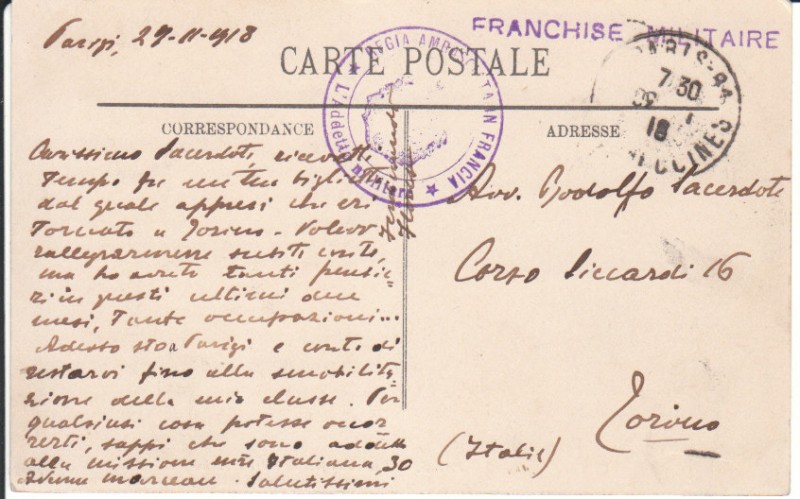 Parigi, 29-11-1918
FRANCHISE MILITAIRE
CARTE POSTALE
REGIA AMBASCIATA IN FRANCIA
L'Addetto militare
PARIS-94
7 30
18
CORRESPONDANCE
ADRESSE
Carissimo Sacerdote, ricevetti
tempo fa un tuo biglietto
dal quale appresi che eri
tornato a Torino. Volevo
rallegrarmene subito con te,
ma ho avuto tanti pensie-
ri in questi ultimi due
mesi, tante occupazioni...
Adesso sto a Parigi e conto di
restarvi fino alla smobilita
zione della mia classe. Per
qualsiasi cosa potesse occor
rerti, sappi che sono addetto
alla missione mre Italiana, 30
Avenue Marceau. Salutissimi
Avv. Rodolfo Sacerdote
Corso Siccardi 16
Torino
(Italie)